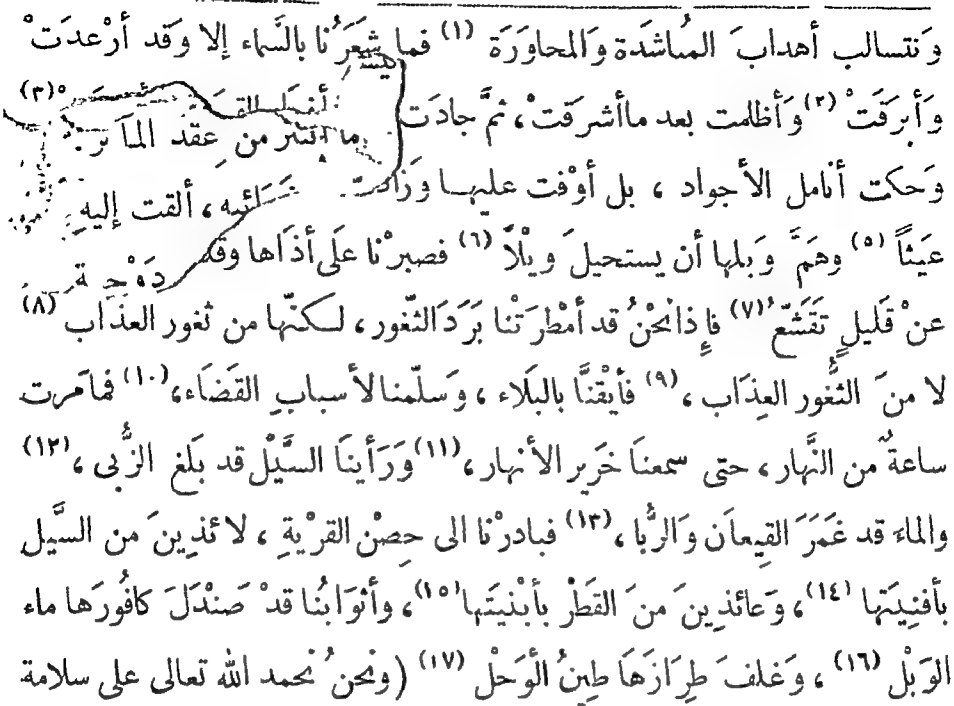 وَنتسالب أهدابَ المناشدَة وَالمحاوَرَة (١) فما شعَرَنُا بالسَّماء إلا وَقد أرْعدَتْ
وَأبرَقَتْ (٢) وَأظلمت بعد ماأشرَقتْ، ثمَّ جادَت (٣)
ما انتثر من عِقد
وَحكت أنامل الأجواد ، بل أوْفت عليها وَزادت ألقت إليهِ
عَيَثاً (٥) وهَمَّ وَبلها أن يستحيلَ وَيْلاً (٦) فصبرْنا علَى أذَاها وقد
عنْ قَليلٍ تَقَشّعُ (٧) فإِذانحْنُ قد أمْطرَتْنا بَرَدَالثّغور، لكنّها من ثغور العذَاب (٨)
لا منَ الثّغور العِذَاب ، (٩) فأيْقنَّا بالبَلَاء ، وَسلّمنا لأسبابِ القَضَاء، (١٠) فمامَرت
ساعةٌ من النَّهار، حتى سمعناَ خَرَير الأنهار، (١١) وَرَأينَا السَّيْل قد بلَغ الزُّبى ، (١٢)
والماءَ قد غَمَرَ القيعاَن وَالرُّبا، (١٣) فبادرْنا الى حِصْن القرْيةِ ، لائذِينَ من السَّيلِ
بأفنِيَتِها (١٤) ، وَعائذِينَ منَ القَطْر بأبْنيَتها (١٥)، وأثوَابُنا قدْ صَنْدَلَ كافُورَها ماء
الوَبْل (١٦) ، وَغلفَ طِرَازَهَا طِينُ الْوَحْل (١٧) (ونحنُ نحمد الله تعالى على سلامة